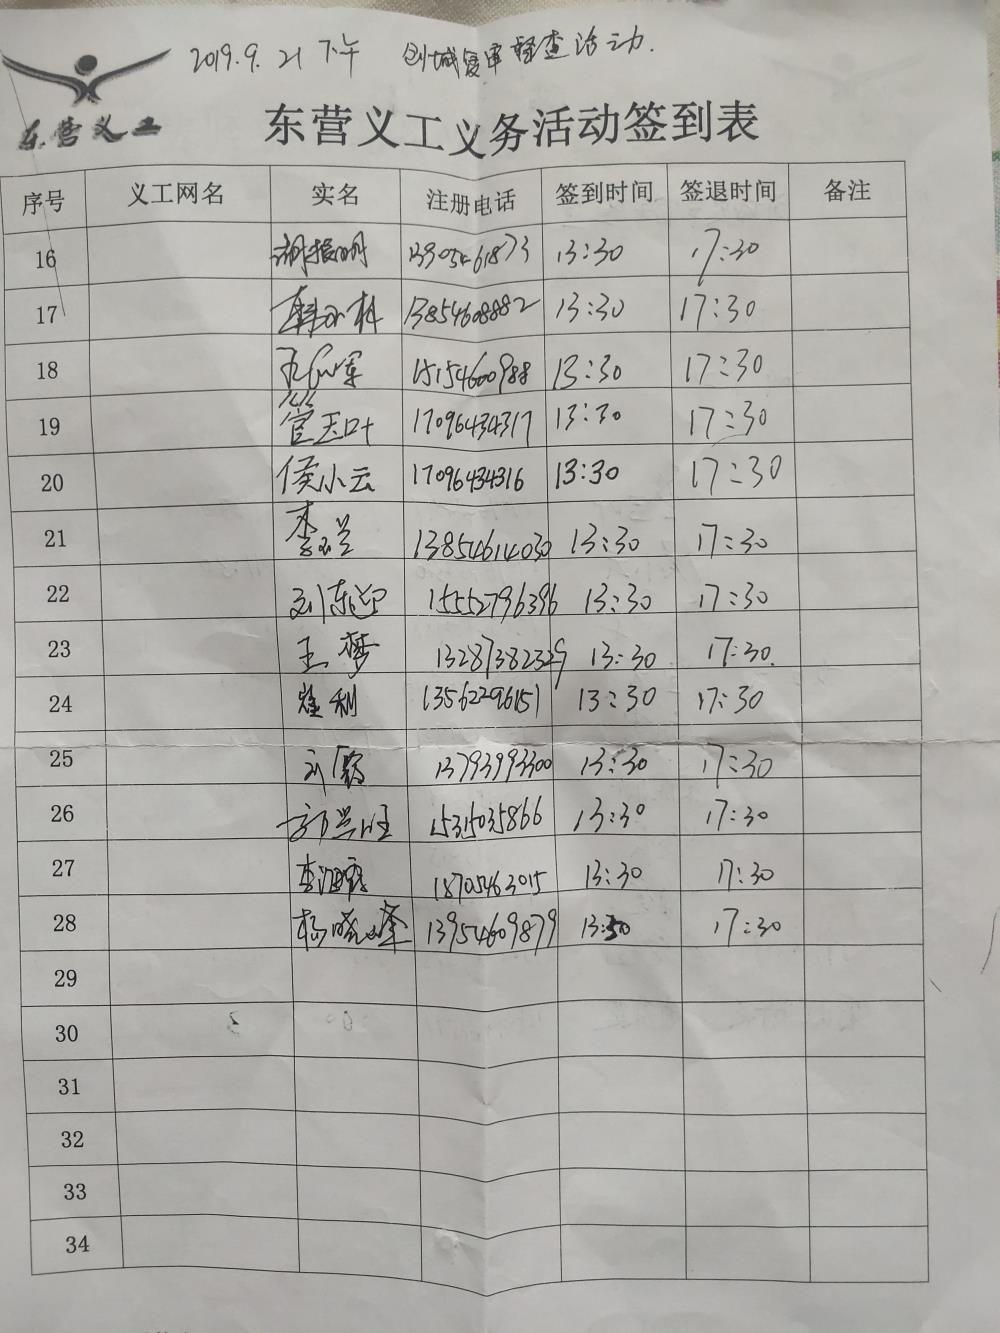 2019.9.21下午 创城复审督查活动.
东营义工
东营义工义务活动签到表
序号 义工网名 实名 注册电话 签到时间 签退时间 备注
16 13905461873 13:30 17:30
17 13854608882 13:30 17:30
18 15154600988 13:30 17:30
19 管玉叶 17096434317 13:30 17:30
20 侯小云 17096434316 13:30 17:30
21 李玉兰 13854614030 13:30 17:30
22 15552796396 13:30 17:30
23 王梦 13287382329 13:30 17:30
24 13562296151 13:30 17:30
25 13793993300 13:30 17:30
26 15315035866 13:30 17:30
27 18705463015 13:30 17:30
28 杨晓 13954609879 13:30 17:30
29
30
31
32
33
34